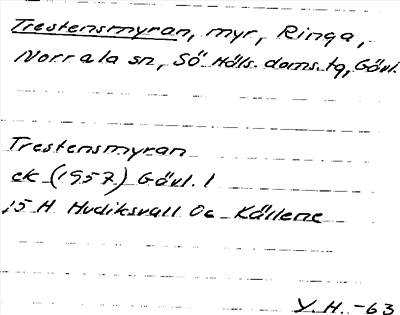 Trestensmyran, myr, Ringa,
Norrala sn, Sö Häls. doms. tg, Gävl.
Trestensmyran
ek (1957) Gävl. l
15 H Hudiksvall 0c Källene
Y. H. -63